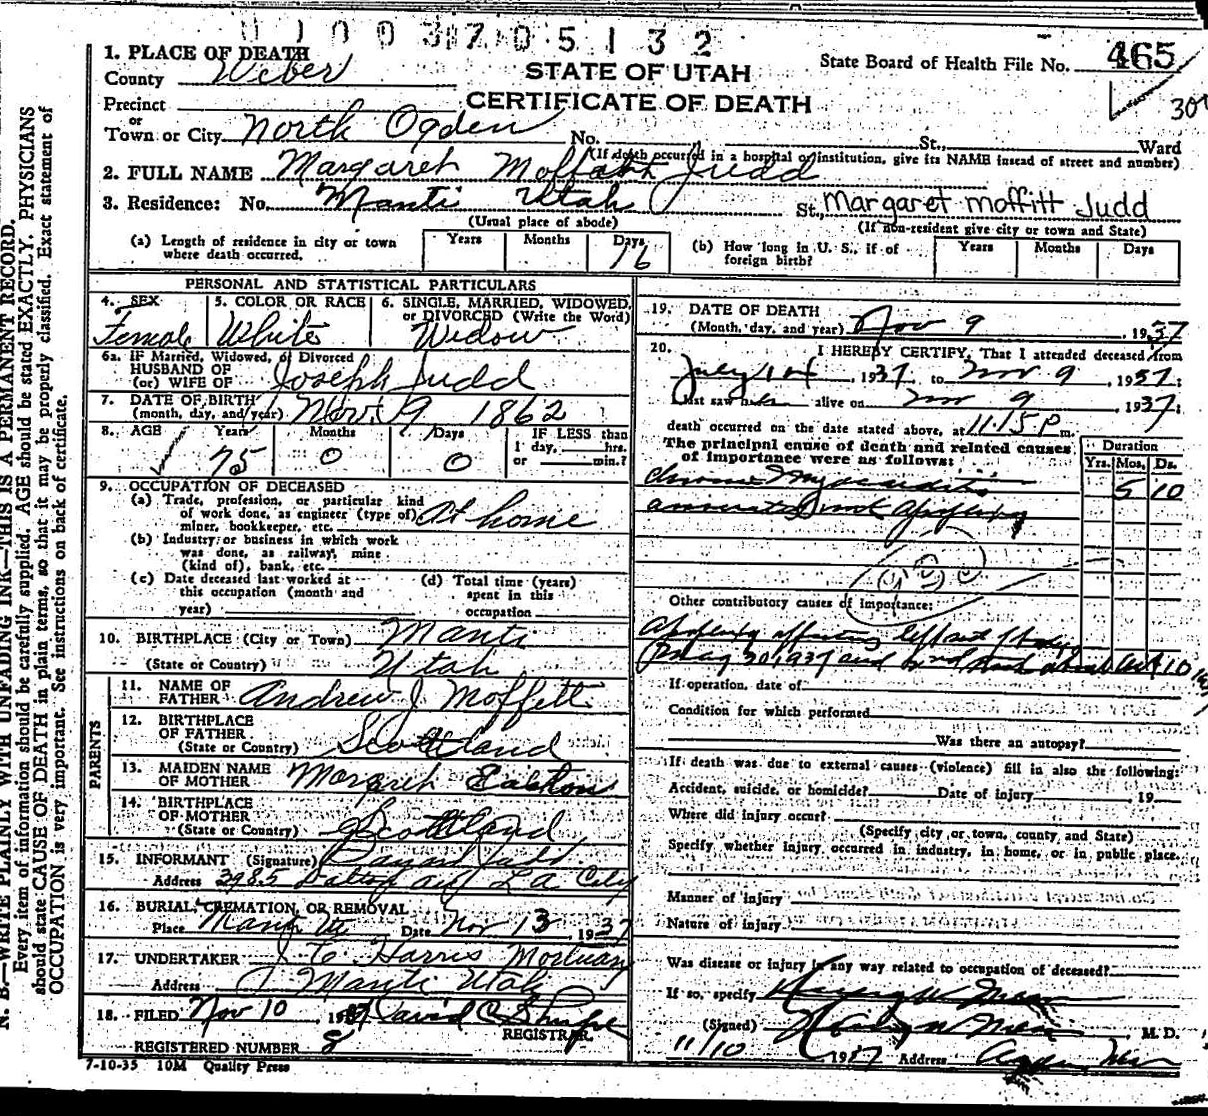 U 1 0 0 3 7 0 5 1 3 2
1. PLACE OF DEATH
County Weber
STATE OF UTAH
CERTIFICATE OF DEATH
State Board of Health File No. 465
Precinct
or
Town or City North Ogden No. St., Ward
(If death occurred in a hospital or institution, give its NAME insead of street and number)
2. FULL NAME Margaret Moffatt Judd
3. Residence: No. Manti Utah St., Margaret Moffitt Judd
(Usual place of abode) (If non-resident give city or town and State)
(a) Length of residence in city or town where death occurred. Years Months Days 16
(b) How long in U. S., if of foreign birth? Years Months Days
PERSONAL AND STATISTICAL PARTICULARS
4. SEX Female
5. COLOR OR RACE White
6. SINGLE, MARRIED, WIDOWED, or DIVORCED (Write the Word) Widow
6a. IF Married, Widowed, or Divorced
HUSBAND OF
(or) WIFE OF Joseph Judd
7. DATE OF BIRTH
(month, day, and year) Nov. 9 1862
8. AGE Years 75 Months 0 Days 0 IF LESS than 1 day, hrs. or min.?
9. OCCUPATION OF DECEASED
(a) Trade, profession, or particular kind of work done, as engineer (type of) miner, bookkeeper, etc. At home
(b) Industry or business in which work was done, as railway, mine (kind of), bank, etc.
(c) Date deceased last worked at this occupation (month and year)
(d) Total time (years) spent in this occupation
10. BIRTHPLACE (City or Town) Manti
(State or Country) Utah
PARENTS
11. NAME OF FATHER Andrew J. Moffett
12. BIRTHPLACE OF FATHER (State or Country) Scottland
13. MAIDEN NAME OF MOTHER Margreh
14. BIRTHPLACE OF MOTHER (State or Country) Scottland
15. INFORMANT (Signature) Judd
Address 3985 L A City
16. BURIAL, CREMATION, OR REMOVAL
Place Manti Ut Date Nov 13, 1937
17. UNDERTAKER J. C. Harris Mortuary
Address Manti Utah
18. FILED Nov 10, 1937 David C
REGISTRAR
REGISTERED NUMBER 8
7-10-35 10M Quality Press
19. DATE OF DEATH
(Month, day, and year) Nov 9 1937
20. I HEREBY CERTIFY, That I attended deceased from
July 1st, 1937, to Nov 9, 1937;
I last saw alive on Nov 9 1937;
death occurred on the date stated above, at 11:15 P m.
The principal cause of death and related causes of importance were as follows:
Duration
Yrs. Mos. Ds.
Chronic Myocarditis 5 10
Apoplexy
Other contributory causes of importance:
Apoplexy affecting left side of body
May 30, 1937 and 2nd
If operation, date of
Condition for which performed
Was there an autopsy?
If death was due to external causes (violence) fill in also the following:
Accident, suicide, or homicide? Date of injury , 19
Where did injury occur?
(Specify city or town, county and State)
Specify whether injury occurred in industry, in home, or in public place.
Manner of injury
Nature of injury
Was disease or injury in any way related to occupation of deceased?
If so, specify
(Signed) M. D.
11/10 1937 Address Ogden, Utah
N. B.—WRITE PLAINLY WITH UNFADING INK—THIS IS A PERMANENT RECORD.
Every item of information should be carefully supplied. AGE should be stated EXACTLY. PHYSICIANS
should state CAUSE OF DEATH in plain terms, so that it may be properly classified. Exact statement of
OCCUPATION is very important. See instructions on back of certificate.